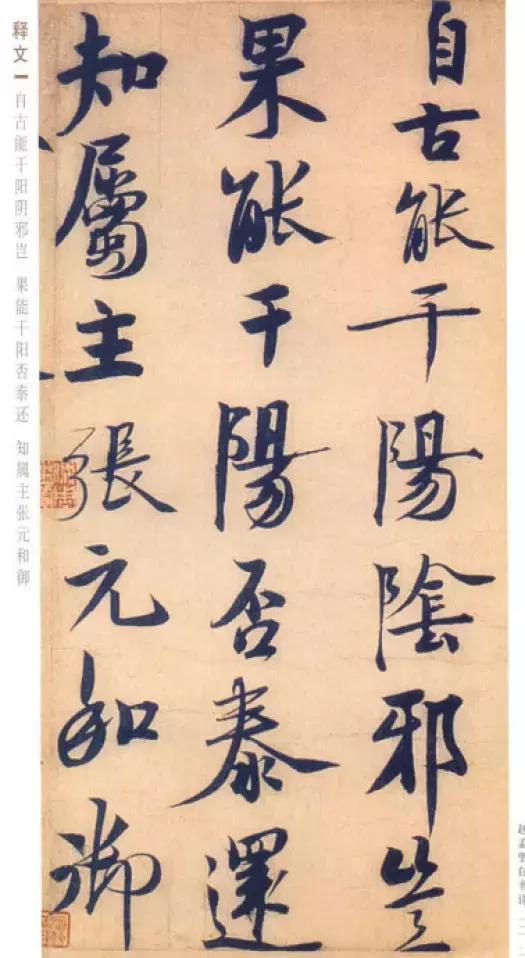 自古能干陽陰邪豈
果能干陽否泰還
知屬主張元和御
释文
自古能干阳阴邪岂 果能干阳否泰还 知属主张元和御